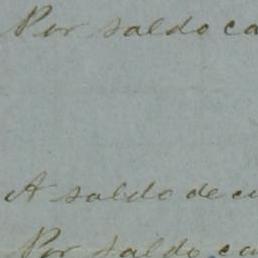 Por saldo ca
A saldo de cu
Por saldo ca